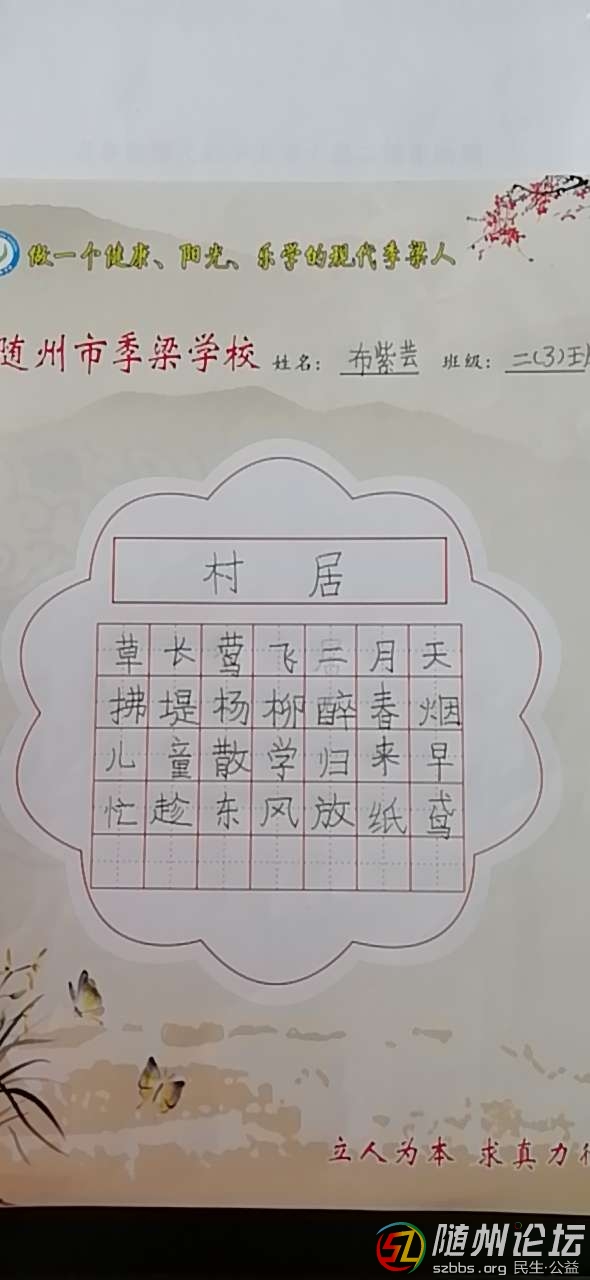 做一个健康、阳光、乐学的现代季梁人
随州市季梁学校 姓名: 布紫芸 班级: 二(3)班
村 居
草长莺飞二月天
拂堤杨柳醉春烟
儿童散学归来早
忙趁东风放纸鸢
立人为本 求真力行
随州论坛
szbbs.org 民生·公益